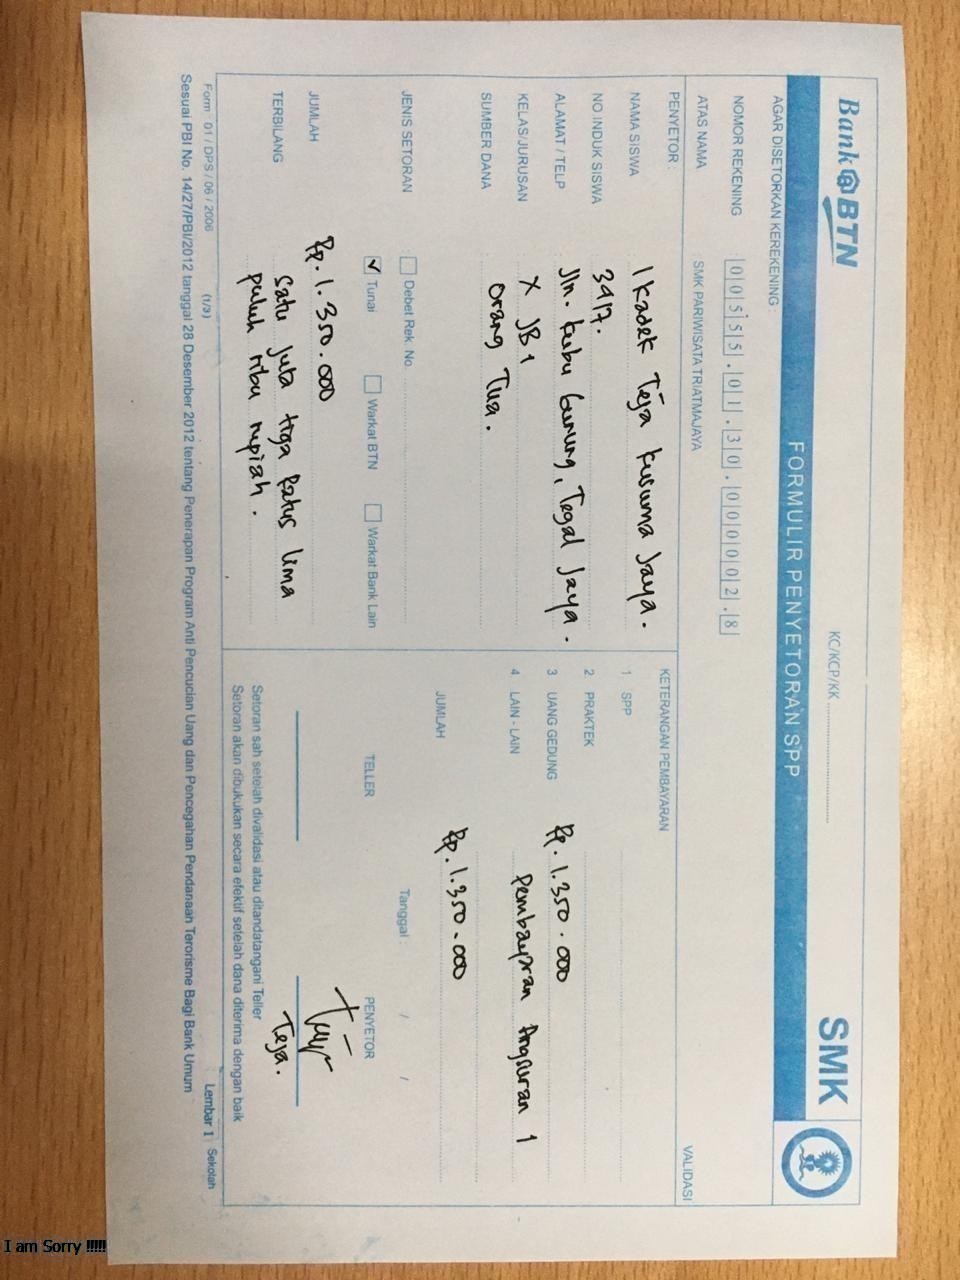 Bank BTN
KC/KCP/KK
SMK
FORMULIR PENYETORAN SPP
AGAR DISETORKAN KEREKENING :
VALIDASI
NOMOR REKENING 00555.01.30.000002.8
ATAS NAMA SMK PARIWISATA TRIATMAJAYA
PENYETOR :
NAMA SISWA I Kadek Teja Kusuma Jaya.
NO. INDUK SISWA 3417.
ALAMAT / TELP Jln. Kubu Gunung, Tegal Jaya.
KELAS/JURUSAN X JB 1
SUMBER DANA Orang Tua.
JENIS SETORAN Debet Rek No.
✓ Tunai Warkat BTN Warkat Bank Lain
JUMLAH Rp. 1.350.000
TERBILANG Satu juta tiga Ratus lima
puluh ribu rupiah.
KETERANGAN PEMBAYARAN
1 SPP
2 PRAKTEK
3 UANG GEDUNG Rp. 1.350.000
4 LAIN - LAIN Pembayaran Angsuran 1
JUMLAH Rp. 1.350.000
Tanggal : / /
TELLER PENYETOR
Teja.
Setoran sah setelah divalidasi atau ditandatangani Teller
Setoran akan dibukukan secara efektif setelah dana diterima dengan baik
Form 01 / DPS / 06 / 2006 (1/3) Lembar 1 Sekolah
Sesuai PBI No. 14/27/PBI/2012 tanggal 28 Desember 2012 tentang Penerapan Program Anti Pencucian Uang dan Pencegahan Pendanaan Terorisme Bagi Bank Umum
I am Sorry !!!!!